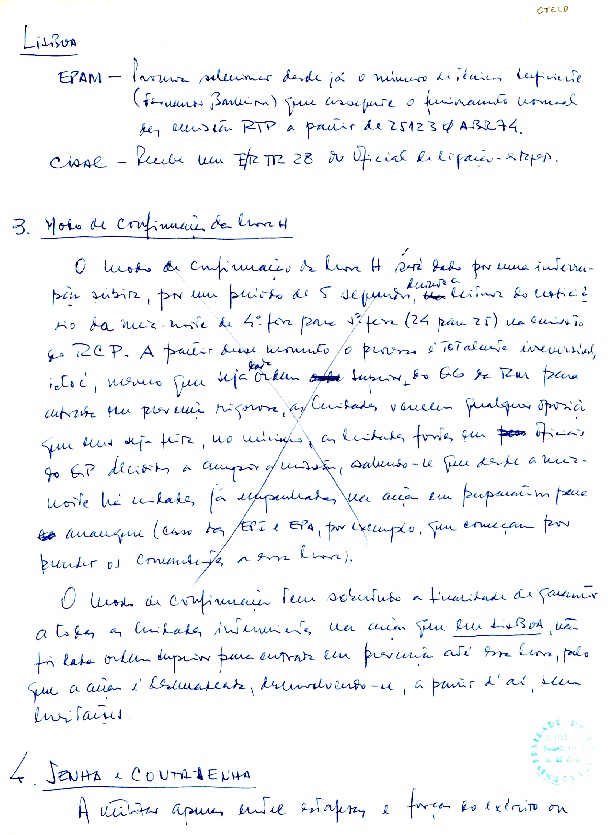 OTELO
LISBOA
EPAM – Procura selecionar desde já o número de técnicos suficiente
(Fernando Bandeira) que assegure o funcionamento normal
das emissão RTP a partir de 251230ABR74.
CIAAC – Recebe um E/R TR 28 do Oficial de ligação-estafeta.
3. Modo de confirmação da hora H
O modo de confirmação da hora H será dado por uma interru-
pção súbita, por um período de 5 segundos, durante a leitura do noticiá
rio da meia-noite de 4ª feira para 5ª feira (24 para 25) na emissão
do RCP. A partir desse momento o processo é totalmente irreversível,
isto é, mesmo que seja dada ordem superior, do QG da Reg para
entrada em prevenção rigorosa, as unidades vencem qualquer oposição
que lhes seja feita, no mínimo, as unidades fortes em Oficiais
do QP decididos a cumprir a missão, sabendo-se que desde a meia-
noite há unidades já empenhadas na acção em preparativos para
arranque (caso das EPI e EPA, por exemplo, que começam por
prender os comandantes a essa hora).
O modo de confirmação tem sobretudo a finalidade de garantir
a todas as unidades intervenientes na acção que em LISBOA, não
foi dada ordem superior para entrada em prevenção até essa hora, pelo
que a acção é desencadeada, desenvolvendo-se, a partir d'aí, sem
hesitações.
4. SENHA e CONTRA-SENHA
A utilizar apenas entre estafetas e forças do exército ou